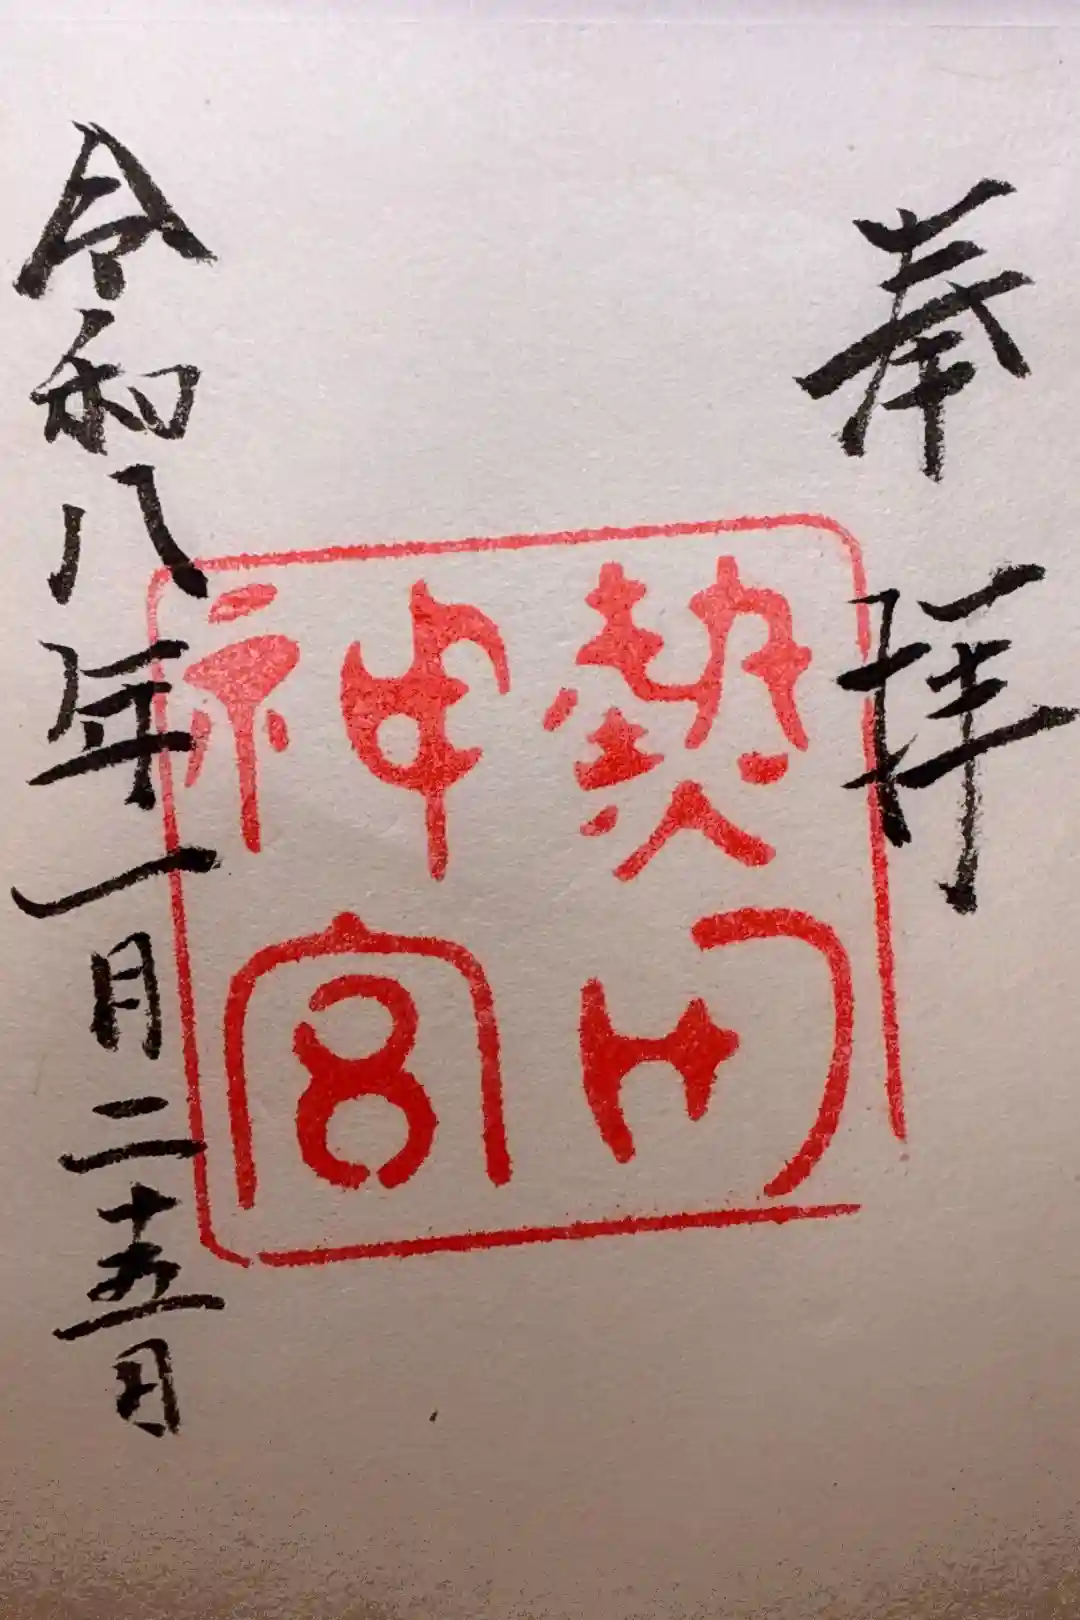 奉拝
熱田
神宮
令和八年一月二十五日